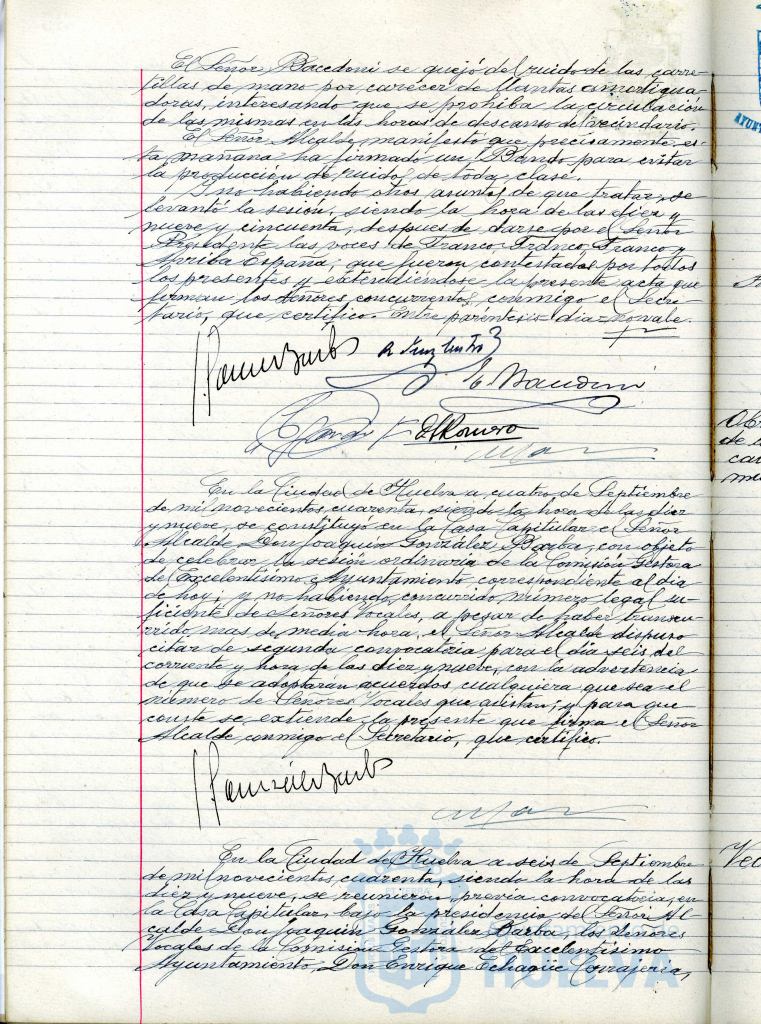 El Señor Bacedoni se quejó del ruido de las carre-
tillas de mano por carecer de llantas amortigua-
doras, interesando que se prohiba la circulación
de las mismas en las horas de descanso del vecindario.
El Señor Alcalde manifestó que precisamente es-
ta mañana ha firmado un Bando para evitar
la producción de ruidos de toda clase.
Y no habiendo otros asuntos de que tratar, se
levantó la sesión, siendo la hora de las diez y
nueve y cincuenta, despues de darse por el Señor
Presidente las voces de Franco, Franco, Franco y
Arriba España; que fueron contestadas por todos
los presentes y extendiéndose la presente acta que
firman los señores concurrentes conmigo el Secre-
tario, que certifico. Entre paréntesis = dia = no vale.
En la Ciudad de Huelva a cuatro de Septiembre
de mil novecientos cuarenta, siendo la hora de las diez
y nueve, se constituyó en la Casa Capitular el Señor
Alcalde Don Joaquín González Barba, con objeto
de celebrar la sesión ordinaria de la Comisión Gestora
del Excelentísimo Ayuntamiento, correspondiente al dia
de hoy; y no habiendo concurrido número legal su-
ficiente de Señores Vocales, a pesar de haber transcu-
rrido mas de media hora, el Señor Alcalde dispuso
citar de segunda convocatoria para el dia seis del
corriente y hora de las diez y nueve, con la advertencia
de que se adoptarán acuerdos cualquiera que sea el
número de Señores Vocales que asistan; y para que
conste se extiende la presente que firma el Señor
Alcalde conmigo el Secretario, que certifico.
En la Ciudad de Huelva a seis de Septiembre
de mil novecientos cuarenta, siendo la hora de las
diez y nueve, se reunieron previa convocatoria, en
la Casa Capitular, bajo la presidencia del Señor Al-
calde Don Joaquín González Barba, los Señores
Vocales de la Comisión Gestora del Excelentísimo
Ayuntamiento, Don Enrique Echagüe Corrajeria,
HUELVA